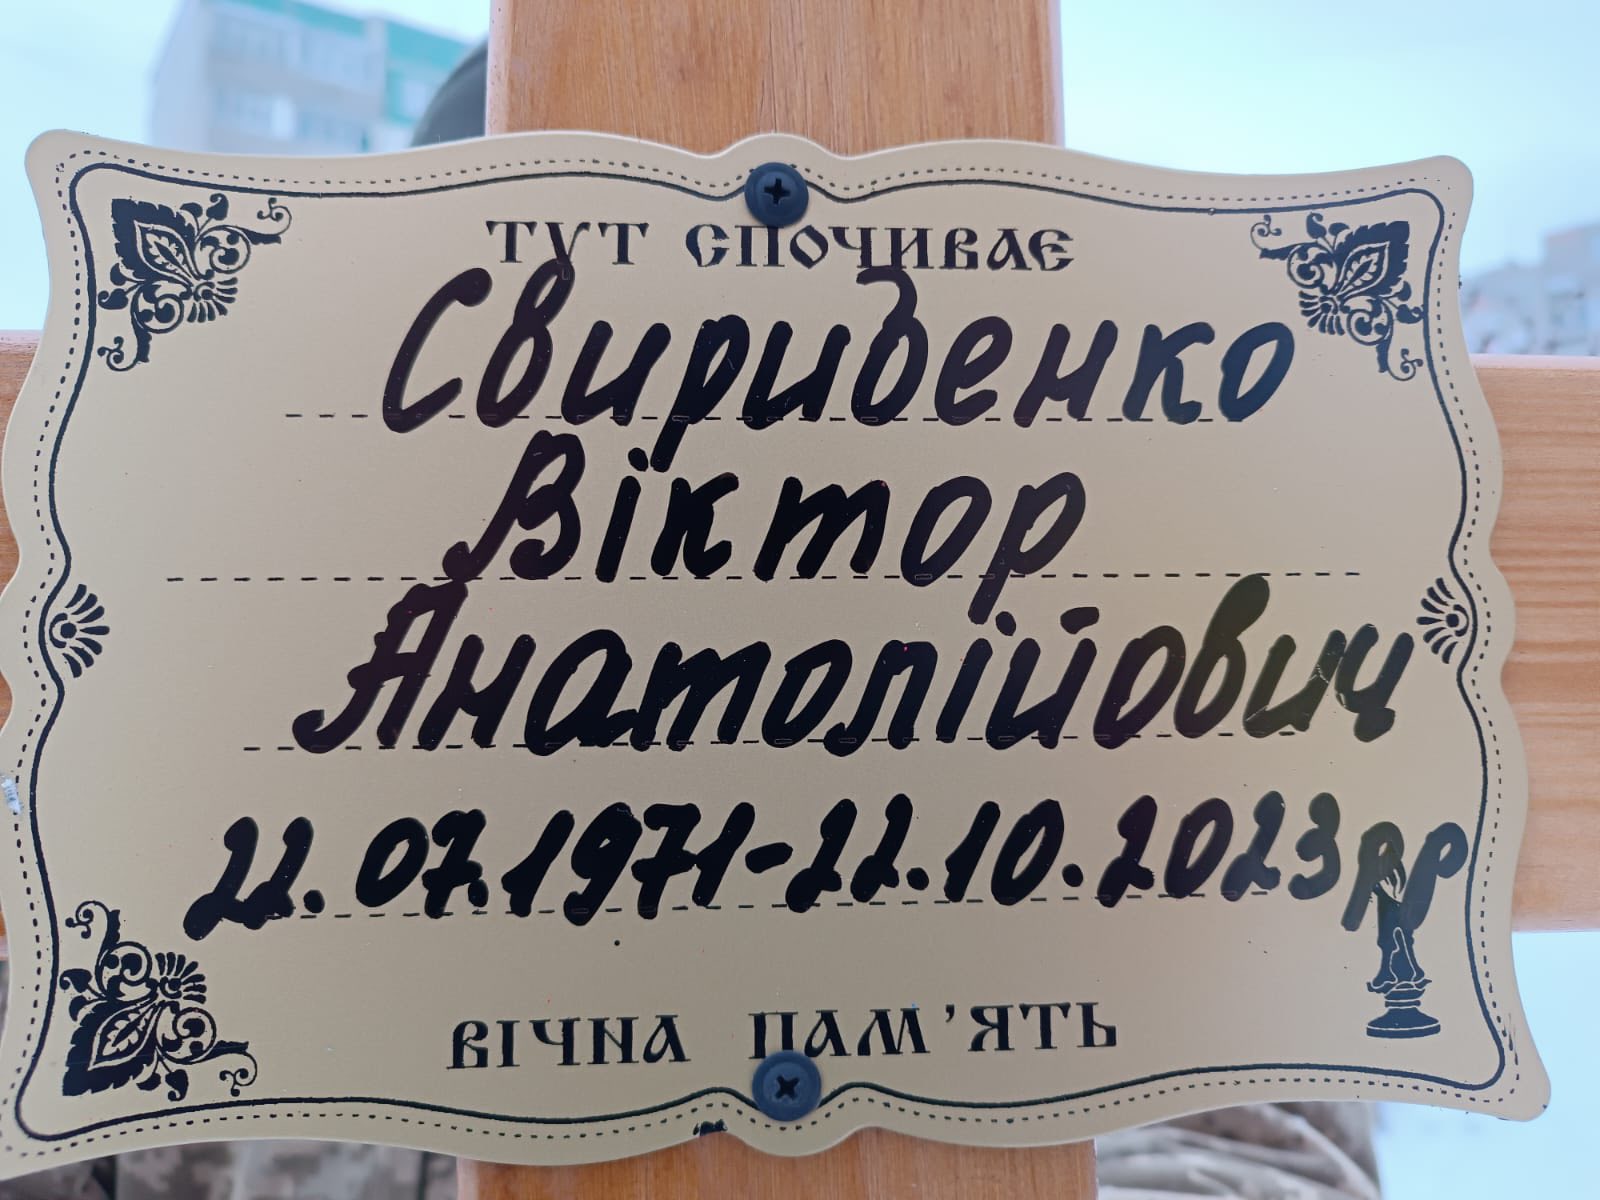 ТУТ СПОЧИВАЄ
Свириденко
Віктор
Анатолійович
22.07.1971-22.10.2023рр
ВІЧНА ПАМ'ЯТЬ